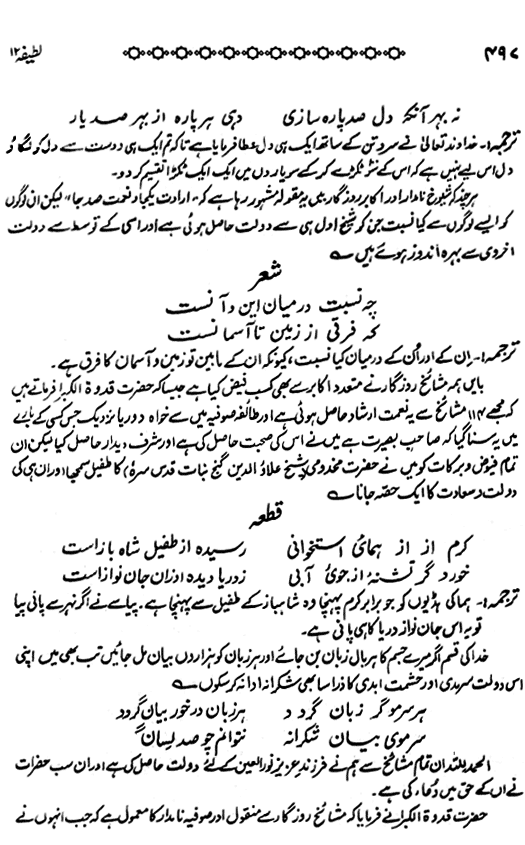 ۴۹۷ لطیفہ ۱۲
نہ بہر آنکہ دل صد پارہ سازی دہی ہر پارہ از بہر صد یار
ترجمہ:۔ خداوند تعالیٰ نے سر و تن کے ساتھ ایک ہی دل عطا فرمایا ہے تاکہ تم ایک ہی دوست سے دل کو لگاؤ
دل اس لیے نہیں ہے کہ اس کے سو ٹکڑے کر کے سو یاروں میں ایک ایک ٹکڑا تقسیم کر دو۔
ہر چند کہ شیوخ نامدار اور اکابر روزگار میں یہ مقولہ مشہور رہا ہے کہ "ارادت یکجا و نعمت صد جا" لیکن ان لوگوں
کو ایسے لوگوں سے کیا نسبت جن کو شیخ اول ہی سے دولت حاصل ہوئی ہے اور اسی کے توسط سے دولت
اخروی سے بہرہ اندوز ہوئے ہیں
شعر
چہ نسبت درمیان این و آنست
کہ فرقی از زمین تا آسمانست
ترجمہ:۔ اِن کے اور اُن کے درمیان کیا نسبت، کیونکہ ان کے مابین تو زمین و آسمان کا فرق ہے۔
بایں ہمہ مشائخ روزگار نے متعدد اکابر سے بھی کسب فیض کیا ہے جیسا کہ حضرت قدوۃ الکبرا فرماتے ہیں
کہ مجھے ۱۱۴ مشائخ سے یہ نعمت ارشاد حاصل ہوئی ہے اور طائفہ صوفیہ میں سے خواہ دور یا نزدیک جس کسی کے بارے
میں یہ سنا گیا کہ صاحب بصیرت ہے میں نے اس کی صحبت حاصل کی ہے اور شرف دیدار حاصل کیا لیکن ان
تمام فیوض و برکات کو میں نے حضرت مخدومی (شیخ علاؤ الدین گنج نبات قدس سرہٗ) کا طفیل سمجھا اور ان ہی کی
دولت و سعادت کا ایک حصّہ جانا
قطعہ
کرم از از ہمائ استخوانی رسیدہ از طفیل شاہ باز است
خورد گر تشنہٗ از جویٔ آبی ز دریا دیدہ او زان جان نواز است
ترجمہ:۔ ہما کی ہڈیوں کو جو برابر کرم پہنچا وہ شاہباز کے طفیل سے پہنچا ہے۔ پیاسے نے اگر نہر سے پانی پیا
تو یہ اس جان نواز دریا کا ہی پانی ہے۔
خدا کی قسم اگر میرے جسم کا ہر بال زبان بن جائے اور ہر زبان کو ہزاروں بیان مل جائیں تب بھی میں اپنی
اس دولت سرمدی اور حشمت ابدی کا ذرا سا بھی شکرانہ ادا نہ کر سکوں
ہر سر مو گر زبان گرد د ہر زبان در خور بیان گردد
سر موی بیان شکرانہ نتوانم چو صد لسان گ
الحمد للّٰہ ان تمام مشائخ سے ہم نے فرزند عزیز نور العین کے لئے دولت حاصل کی ہے اور ان سب حضرات
نے اُن کے حق میں دُعاء کی ہے۔
حضرت قدوۃ الکبرا نے فرمایا کہ مشائخ روزگار سے منقول اور صوفیہ نامدار کا معمول ہے کہ جب انہوں نے